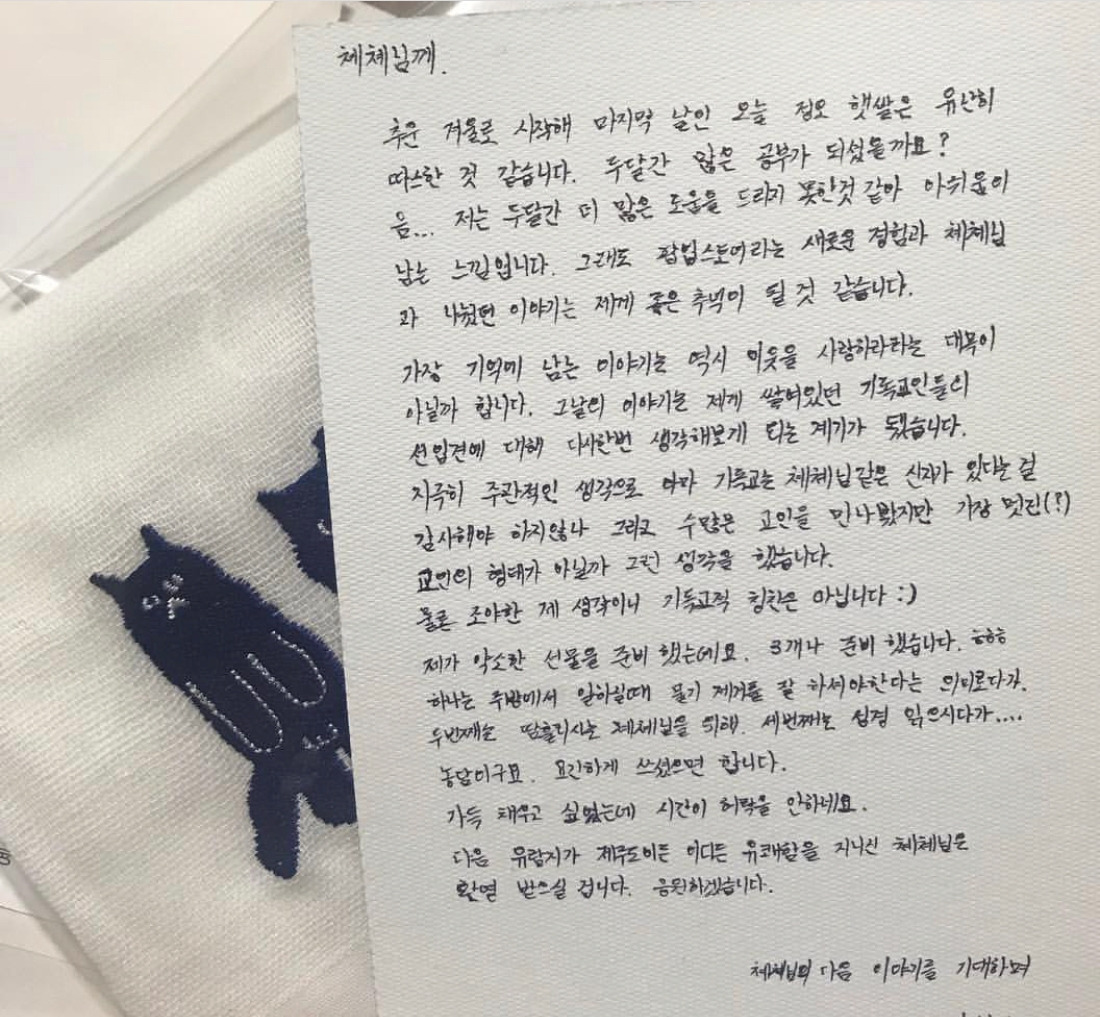 체체님께.
추운 겨울로 시작해 마지막 날인 오늘 정오 햇쌀은 유난히
따스한 것 같습니다. 두달간 많은 공부가 되셨을까요?
음... 저는 두달간 더 많은 도움을 드리지 못한것 같아 아쉬움이
남는 느낌입니다. 그래도 팝업스토어라는 새로운 경험과 체체님
과 나눴던 이야기는 제게 좋은 추억이 될 것 같습니다.
가장 기억에 남는 이야기는 역시 이웃을 사랑하라라는 대목이
아닐까 합니다. 그날의 이야기는 제게 쌓여있던 기독교인들의
선입견에 대해 다시한번 생각해보게 되는 계기가 됐습니다.
지극히 주관적인 생각으로 아마 기독교는 체체님같은 신자가 있다는 걸
감사해야 하지않나 그리고 수많은 교인을 만나봤지만 가장 멋진(?)
교인의 형태가 아닐까 그런 생각을 했습니다.
물론 조야한 제 생각이니 기독교적 칭찬은 아닙니다 :)
제가 약소한 선물을 준비 했는데요. 3개나 준비 했습니다. ㅎㅎㅎ
하나는 주방에서 일하실때 물기 제거를 잘 하셔야한다는 의미로다가.
두번째는 땀흘리시는 체체님을 위해. 세번째는 성경 읽으시다가....
농담이구요. 요긴하게 쓰셨으면 합니다.
가득 채우고 싶었는데 시간이 허락을 안하네요.
다음 유랑지가 제주도이든 어디든 유쾌함을 지니신 체체님은
환영 받으실 겁니다. 응원하겠습니다.
체체님의 다음 이야기를 기대하며